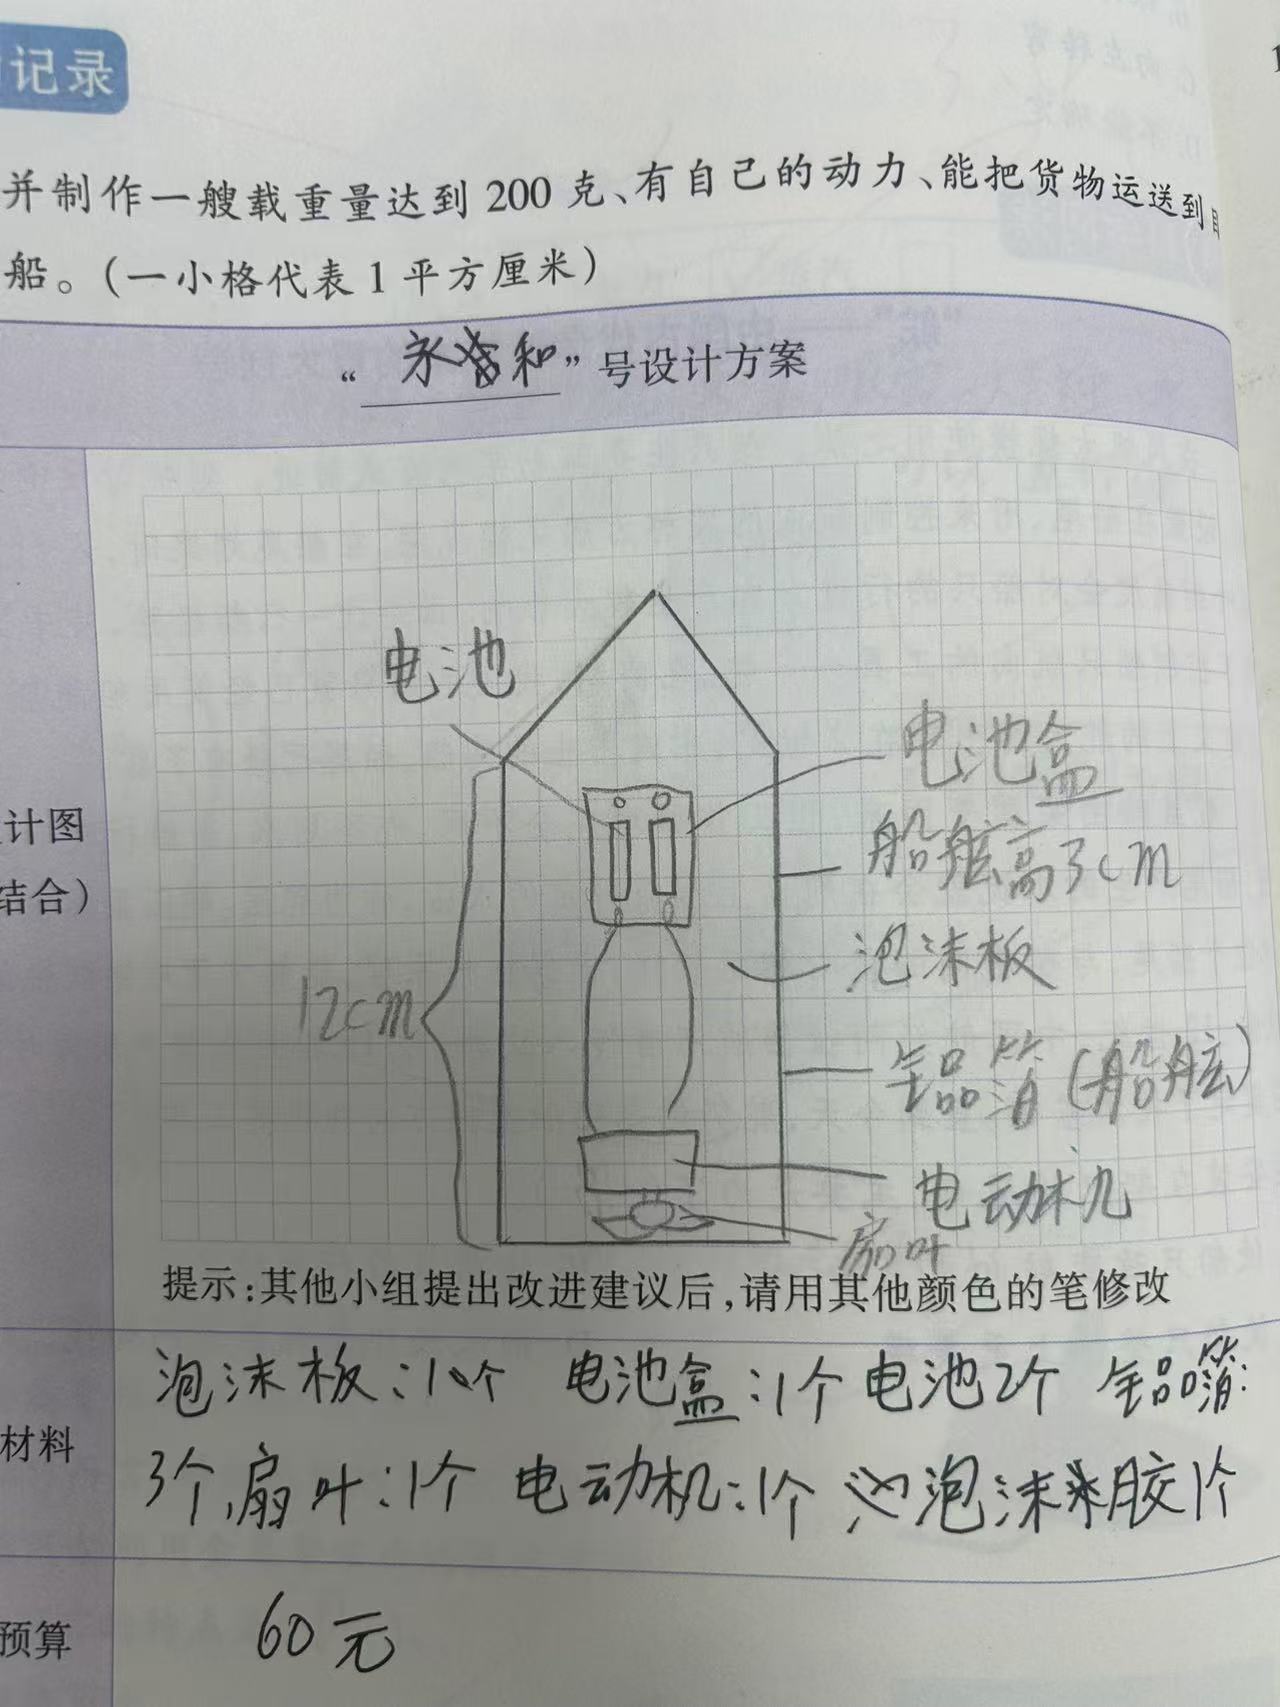 记录
并制作一艘载重量达到 200 克、有自己的动力、能把货物运送到
船。（一小格代表 1 平方厘米）
“永和”号设计方案
电池
电池盒
计图
船舷高3cm
结合）
泡沫板
12cm
铝箔（船舷）
电动机
扇叶
提示：其他小组提出改进建议后，请用其他颜色的笔修改
泡沫板：1个 电池盒：1个 电池2个 铝箔：
材料
3个，扇叶：1个 电动机：1个 泡沫胶1个
预算
60元